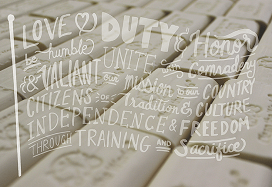 LOVE DUTY & Honor
be humble
& VALIANT UNITE with Comradery
our mission to our COUNTRY
CITIZENS of Tradition & CULTURE
INDEPENDENCE & FREEDOM
THROUGH TRAINING AND Sacrifice